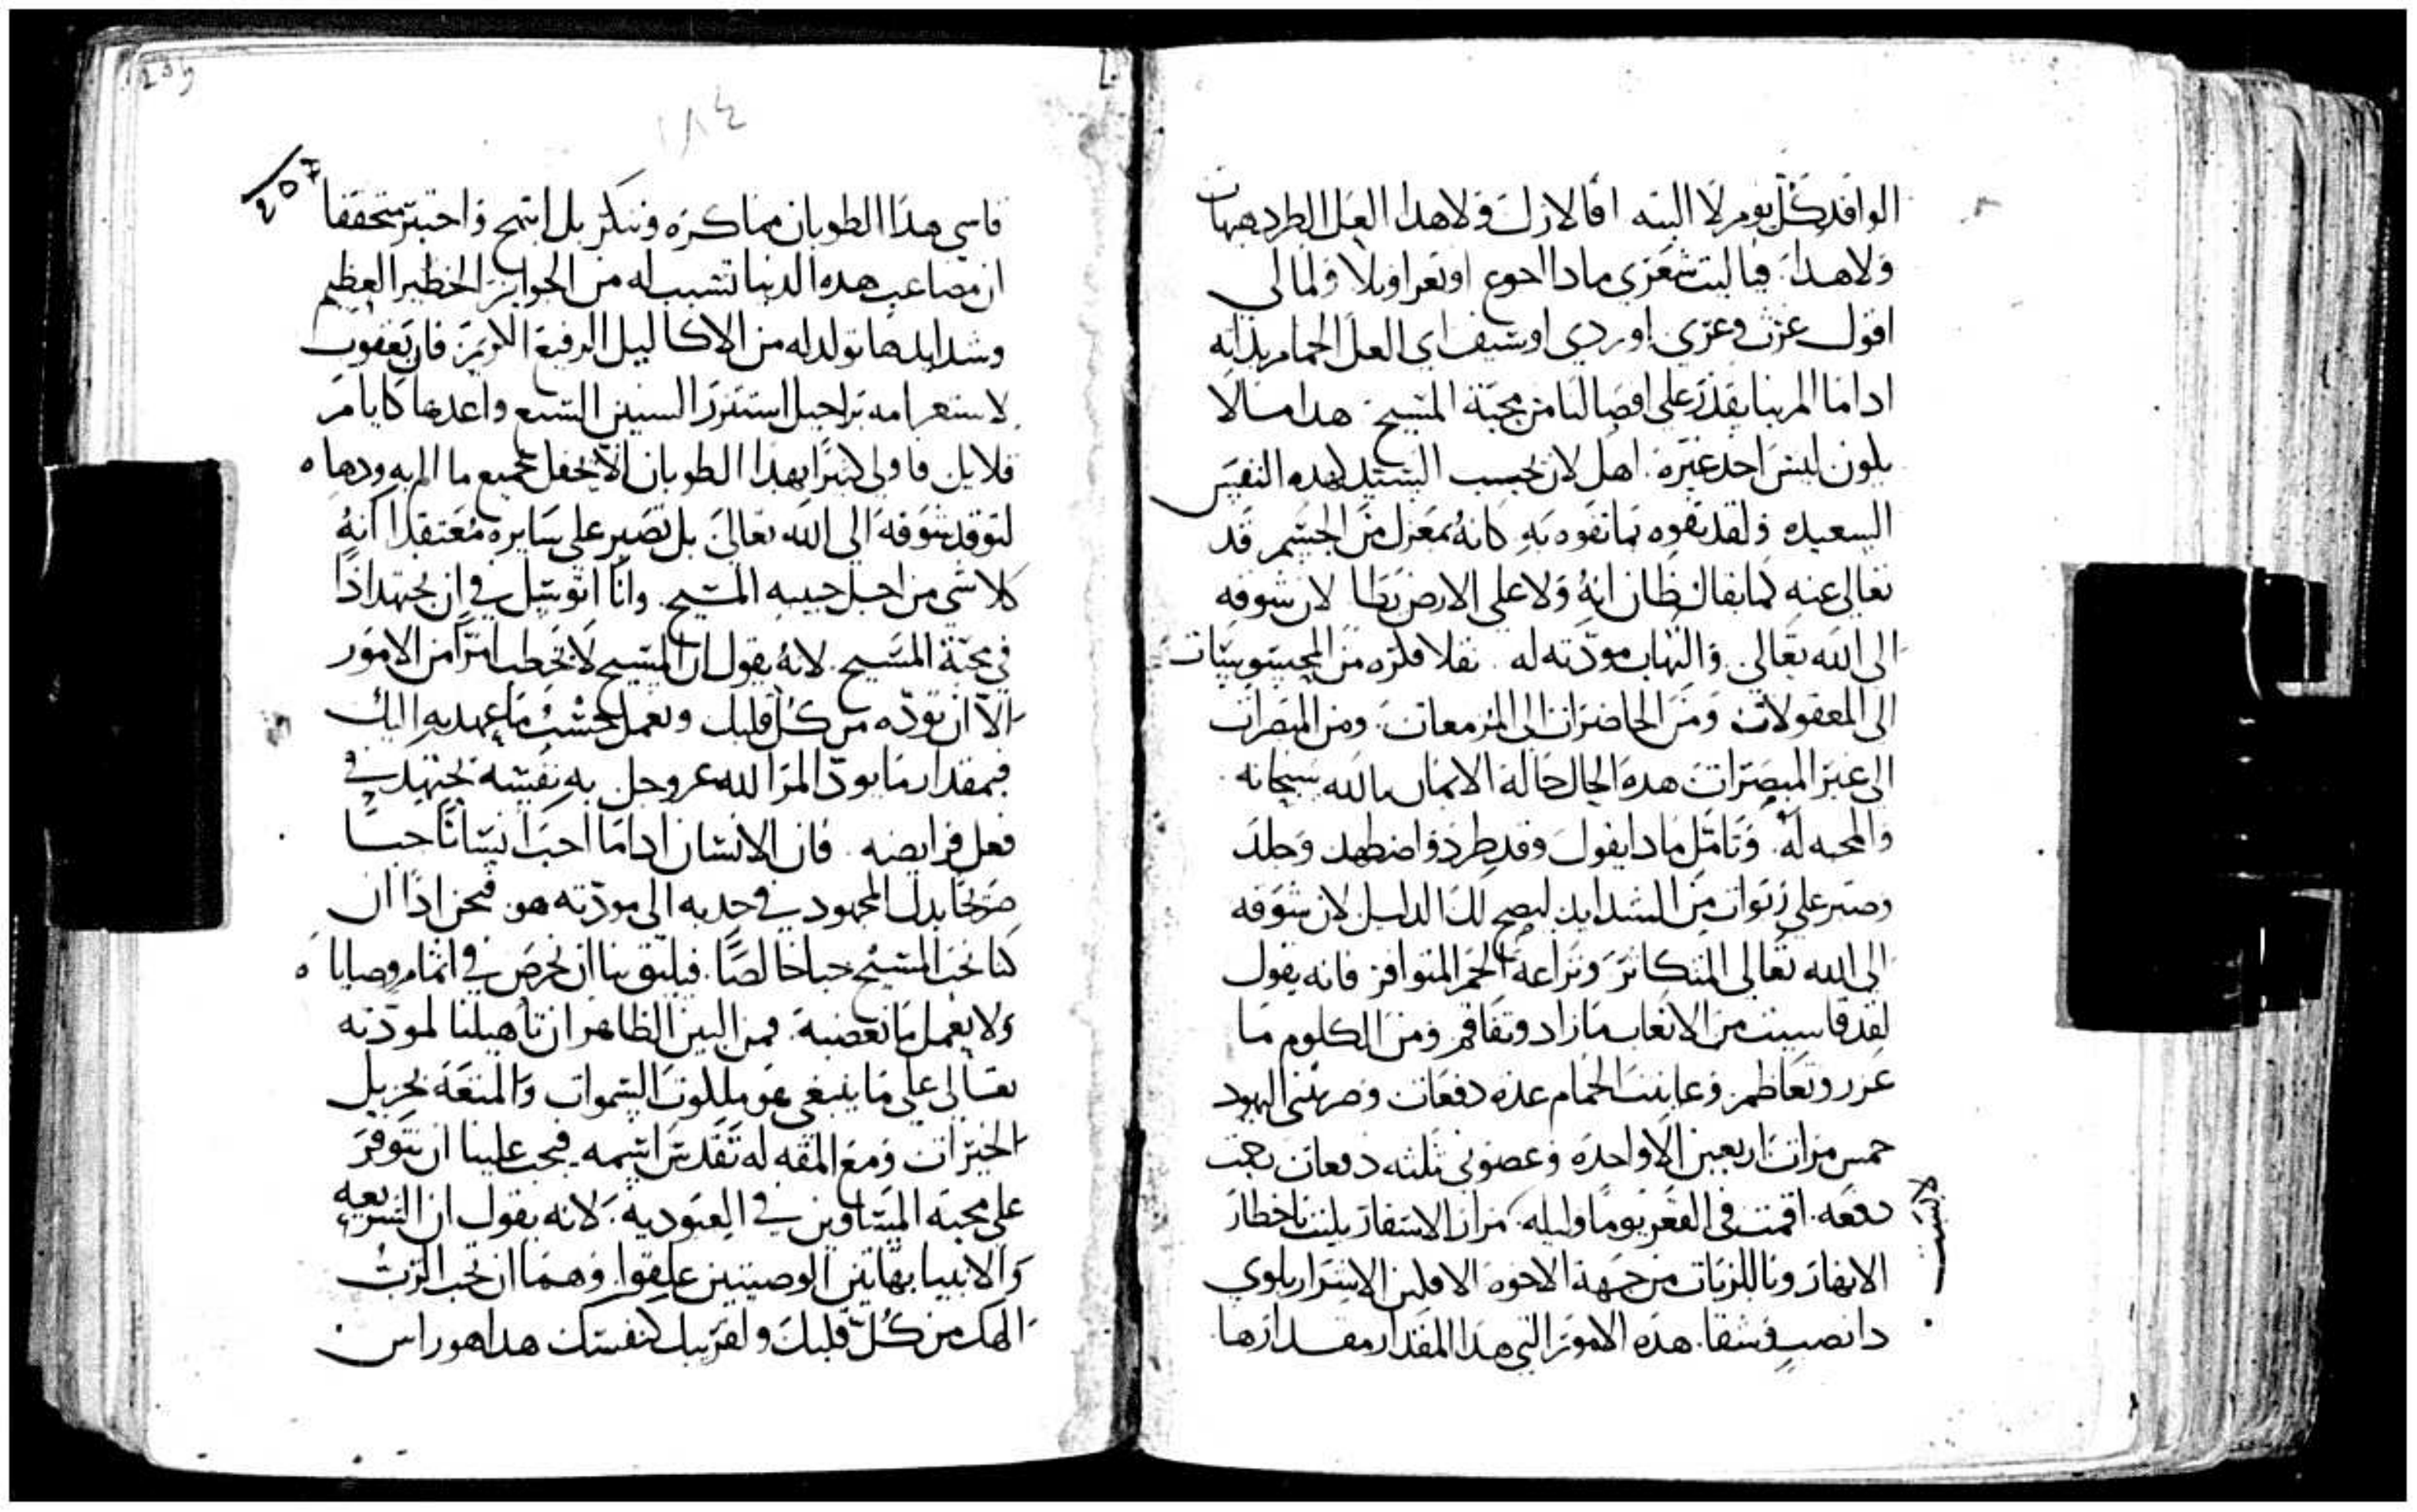 الوافد كل يوم لا البته افالازلك ولا هدا العل الطرد هيهات
ولا هدا. فيا ليت شعري مادا احوع او تعر اوبلا ولما لى
اقول عزت وعزي او ردي او سيف اى العل الحمام بدانه
ادا ما المرينا يقدر على افصالنا من محبة المسيح. هدا ما لا
يلون ليس احد غيره. اهل لان بحسب السيد لهده النفس
السعيده ولقد تفوه بما تفوه به كانه بمعزل من الجسم قد
تعالى عنه كما يقال ظان انه ولا على الارض يطا لان شوقه
الى الله تعالى والتهاب مودته له. نقلا فلره من المحسوسات
الى المعقولات ومن الحاضرات الى المزمعات. ومن المبصرات
الى غير المبصرات هده الحال حالة الايمان بالله سبحانه.
والمحبه له. وتامل مادا يقول وقد طرد واضطهد وجلد
وصبر على ربوات من الشدايد ليصح لك الدليل لان شوقه
الى الله تعالى المتكاثر ونزاعه الجم المتوافر فانه يقول
لقد قاسيت من الاتعاب ما زاد وتفاقم ومن الكلوم ما
عزر وتعاظم وعاينت الحمام عده دفعات وضربتني اليهود
خمس مرات اربعين الا واحده وعصوني ثلثه دفعات رجمت
دفعه. اقمت فى القعر يوما وليله. مرار الاسفار بليت باخطار
لاسيت
الانهار وبا للزبات من جهة الاخوه الافلين الاشرار بلوي
دا نصب وشقا. هده الامور التي هدا المقدار مقدارها
234
184
257
قاسي هدا الطوبان مما كره وتنكر بل ابتهج واحتبر متحققا
ان مصاعب هده الدنيا تسبب له من الجوايز الخطير العظيم
وشدايدها تولد له من الاكاليل الرفيع اللريم. فان يعقوب
لاستعرامه براحيل استنزر السبين السبع واعدها كايام
قلايل فاولى لتيرا بهدا الطوبان الا يحفل بجميع ما الم به ودهاه
لتوقد شوقه الى الله تعالى بل تصبر على سايره معتقدا انه
كلا شي من اجل حبيبه المسيح. وانا اتوسل في ان نجتهد اذا
في محبة المسيح. لانه يقول ان المسيح لا يخطب امرا من الامور
الا ان توده من كل قلبك وتعمل بحسب ما عهد به اليك
فبمقدار ما يود المر الله عز وجل به نفسه يجتهد في
فعل فرايضه. فان الانسان ادا ما احب انسانا حبا
صريحا بدل المجهود في جدبه الى مودته هو. فنحن اذا ان
كنا نحب المسيح حبا خالصا. فيليق بنا ان نحرص في اتمام وصاياه
ولا نعمل ما نعضبه. فمن البين الظاهر ان تاهيلنا لمودته
تعالى على ما ينبغي هو ملكوت السموات والمنعه بجزيل
الخيرات ومع المقه له تقدس اسمه فيجب علينا ان نتوفر
على محبة المساوين في العبوديه. لانه يقول ان الشريعه
والانبيا بهاتين الوصيتين علقوا. وهما ان تحب الرب
الهك من كل قلبك ولقريبك كنفسك هدا هو راس